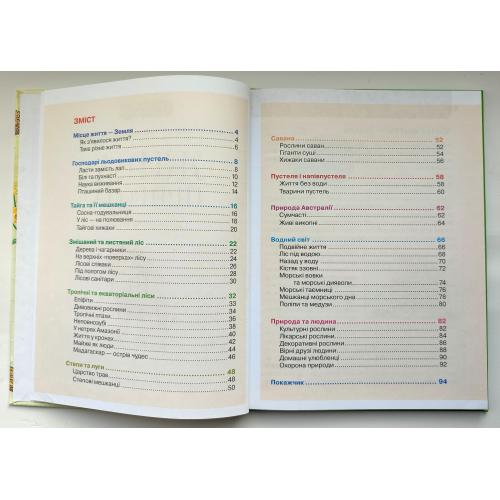 ЗМІСТ
Місце життя — Земля 4
Як з'явилося життя? 4
Таке різне життя 6
Господарі льодовикових пустель 8
Ласти замість лап 8
Білі та пухнасті 10
Наука виживання 12
Пташиний базар 14
Тайга та її мешканці 16
Сосна-годувальниця 16
У ліс — на полювання 18
Тайгові хижаки 20
Змішаний та листяний ліс 22
Дерева і чагарники 22
На верхніх «поверхах» лісу 24
Лісові співаки 26
Під пологом лісу 28
Лісові санітари 30
Тропічні та екваторіальні ліси 32
Епіфіти 32
Дивовижні рослини 34
Тропічні птахи 36
Неповнозубі 38
У нетрях Амазонії 40
Життя у кронах 42
Майже як люди 44
Мадагаскар — острів чудес 46
Степи та луги 48
Царство трав 48
Степові мешканці 50
Савана 52
Рослини саван 52
Гіганти суші 54
Хижаки савани 56
Пустелі і напівпустелі 58
Життя без води 58
Тварини пустель 60
Природа Австралії 62
Сумчасті 62
Живі викопні 64
Водний світ 66
Подвійне життя 66
Ліс під водою 68
Назад у воду 70
Кістяк ззовні 72
Морські вовки
та морські дияволи 74
Морські таємниці 76
Мешканці морського дна 78
Поліпи та медузи 80
Природа та людина 82
Культурні рослини 82
Лікарські рослини 84
Декоративні рослини 86
Вірні друзі людини 88
Домашні улюбленці 90
Охорона природи 92
Покажчик 94